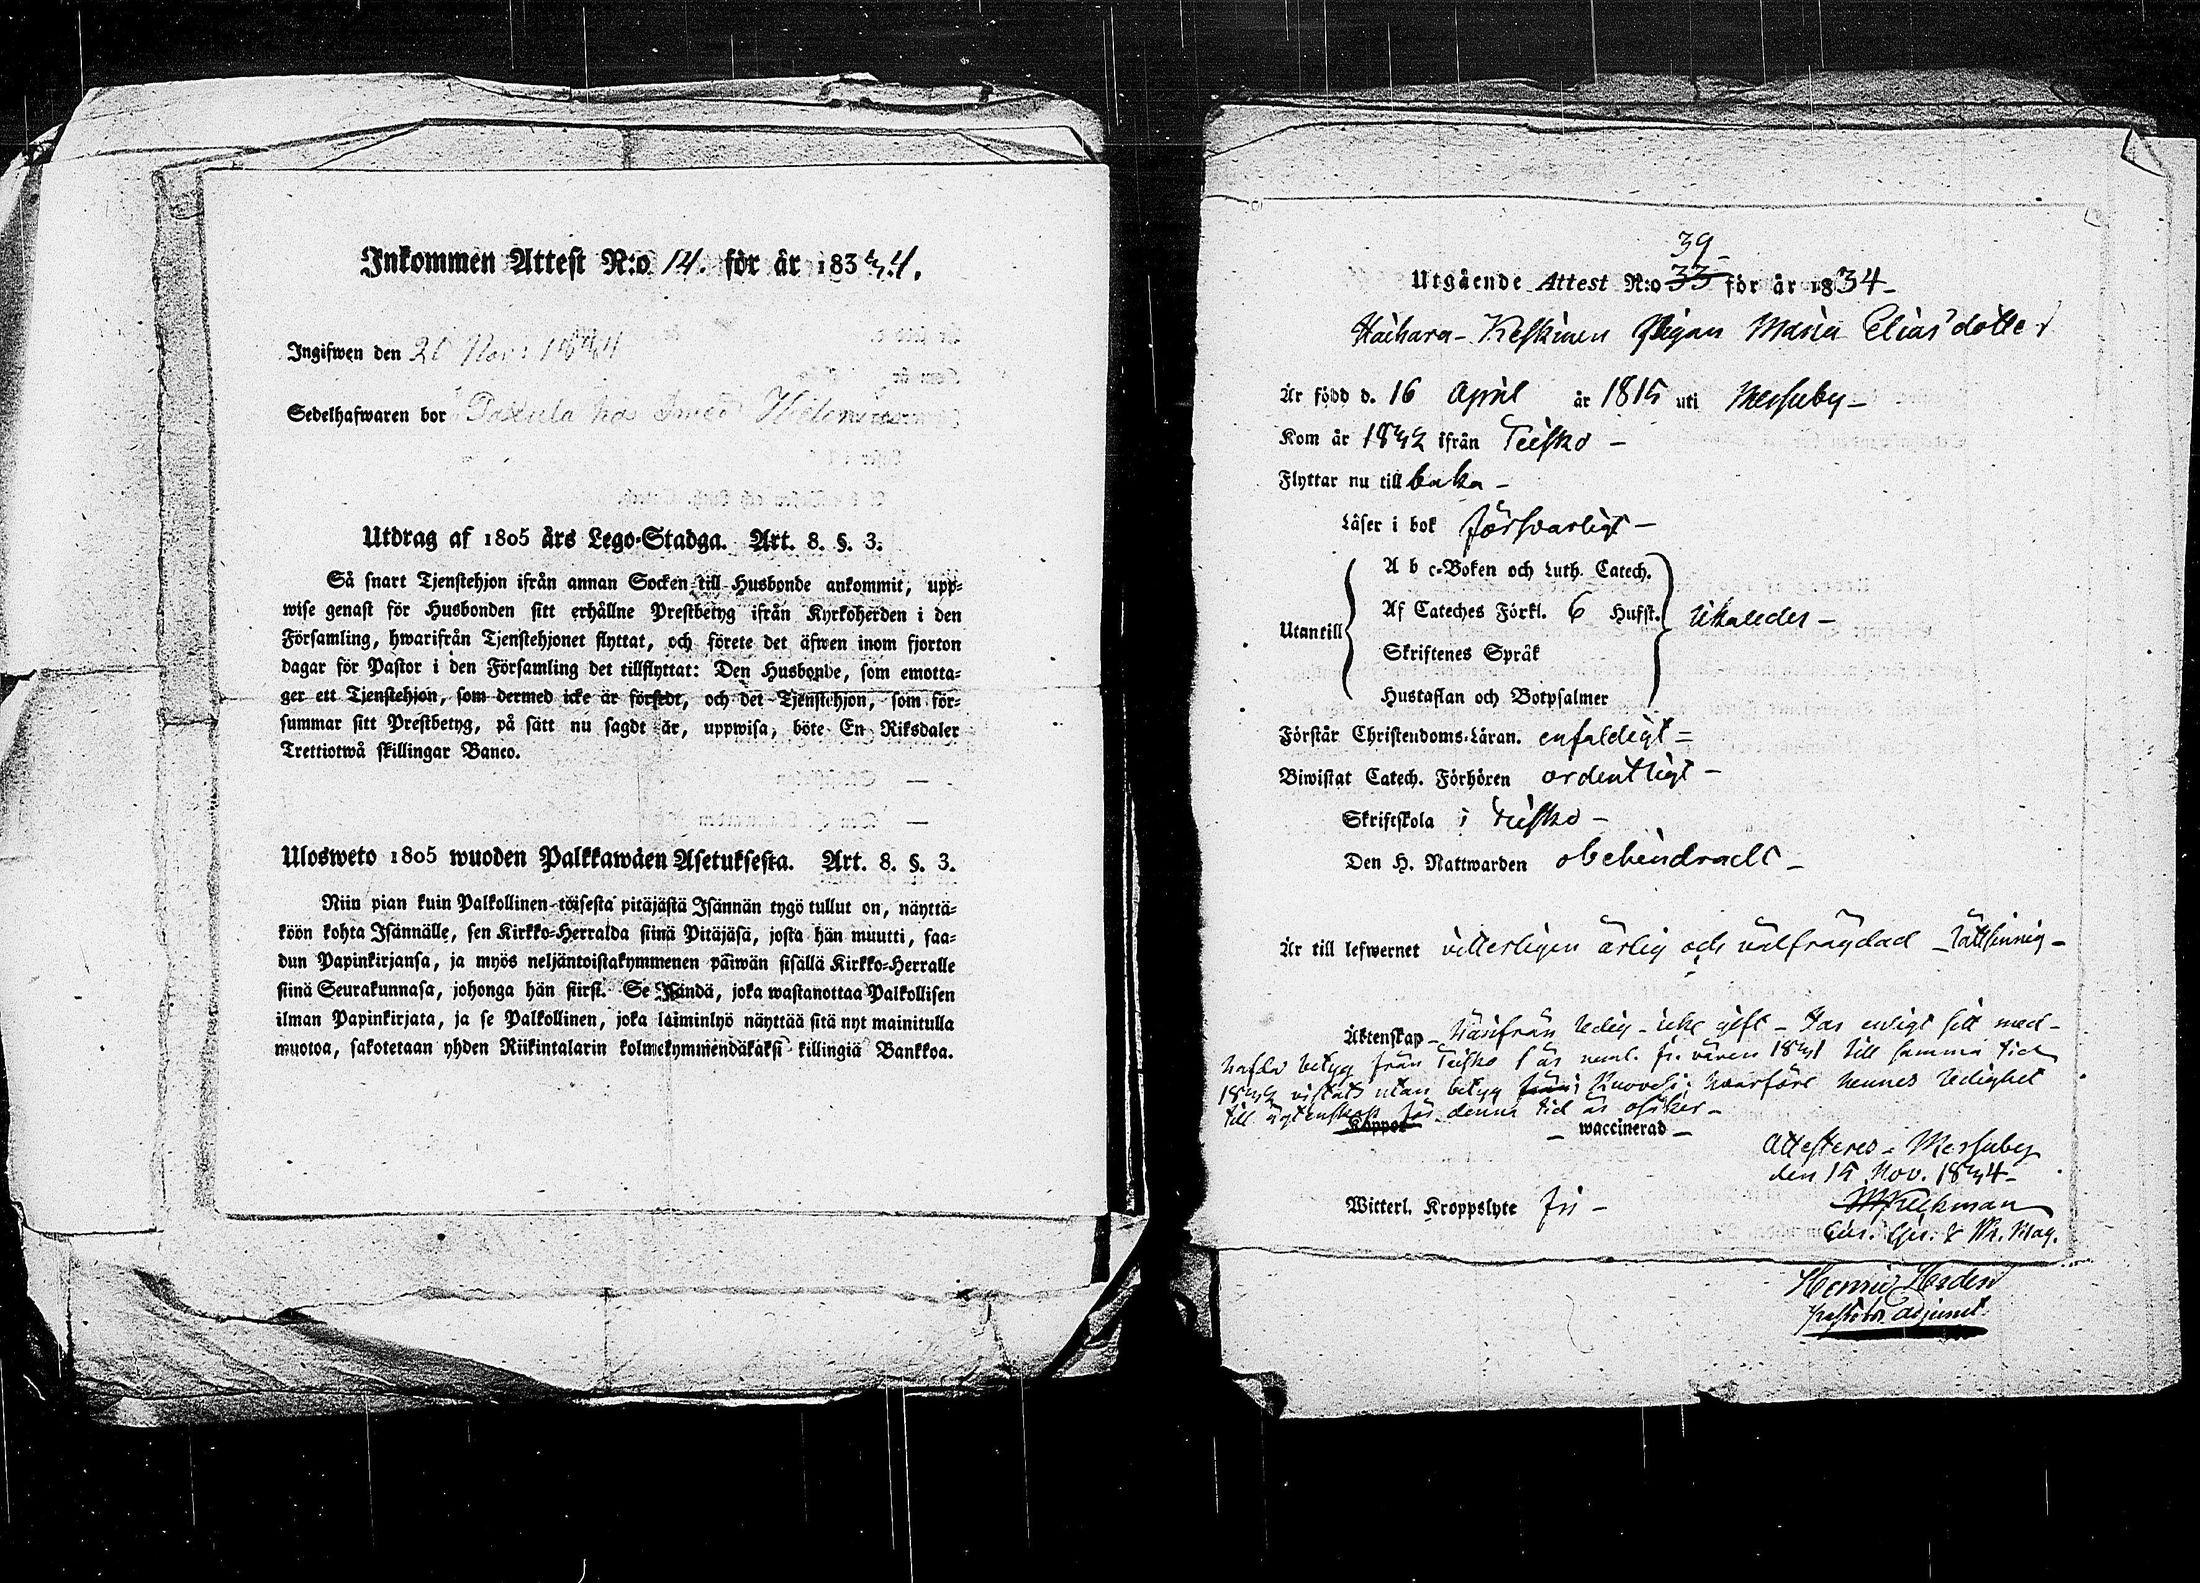 Inkommen Attest N:o 14. för år 1834.
Ingifwen den 26 Nov: 1834
Sedelhafwaren bor Paxula hos
Utdrag af 1805 års Lego-Stadga. Art. 8. §. 3.
Så snart Tjenstehjon ifrån annan Socken till Husbonde ankommit, upp-
wise genast för Husbonden sitt erhållne Prestbetyg ifrån Kyrkoherden i den
Församling, hwarifrån Tjenstehjonet flyttat, och förete det äfwen inom fjorton
dagar för Pastor i den Församling det tillflyttat: Den Husbonde, som emotta-
ger ett Tjenstehjon, som dermed icke är försedt, och det Tjenstehjon, som för-
summar sitt Prestbetyg, på sätt nu sagdt är, uppwisa, böte En Riksdaler
Trettiotwå skillingar Banco.
Ulosweto 1805 wuoden Palkkawäen Asetuksesta. Art. 8. §. 3.
Niin pian kuin Palkollinen toisesta pitäjästä Isännän tygö tullut on, näyttä-
köön kohta Isännälle, sen Kirkko-Herralda siinä Pitäjäsä, josta hän muutti, saa-
dun Papinkirjansa, ja myös neljäntoistakymmenen päiwän sisällä Kirkko-Herralle
siinä Seurakunnasa, johonga hän siirst. Se Isändä, joka wastanottaa Palkollisen
ilman Papinkirjata, ja se Palkollinen, joka laiminlyö näyttää sitä nyt mainitulla
muotoa, sakotetaan yhden Riikintalarin kolmekymmendäkaksi killingiä Bankkoa.
39
Utgående Attest N:o 33 för år 1834
Haihara-Keskinen Pigan Maria Eliasdotter
Är född d. 16 April år 1815 uti Messuby
Kom år 1832 ifrån Teisko
Flyttar nu till baka
Läser i bok försvarligt
A b c-Boken och Luth. Catech.
Af Cateches Förkl. 6 Hufst.
Utantill
Skriftenes Språk
Hustaflan och Botpsalmer
Förstår Christendoms-Läran. enfaldigt
Biwistat Catech. Förhören ordentligt
Skriftskola i Teisko
Den H. Nattwarden obehindradt
Är till lefwernet vitterligen ärlig och välfrägdad lättsinnig
Äktenskap Härifrån ledig icke gift Har enligt sitt med-
hafda betyg från Teisko 1 år neml. fr. våren 1831 till samma tid
1832 vistats utan betyg från i Ruovesi; hvarföre hennes ledighet
till ägtenskap för denna tid är osäker
Koppor waccinerad
Attesteras Messuby
den 15 Nov. 1834
Witterl. Kroppslyte fri
Henric Heden
Pastors Adjunct